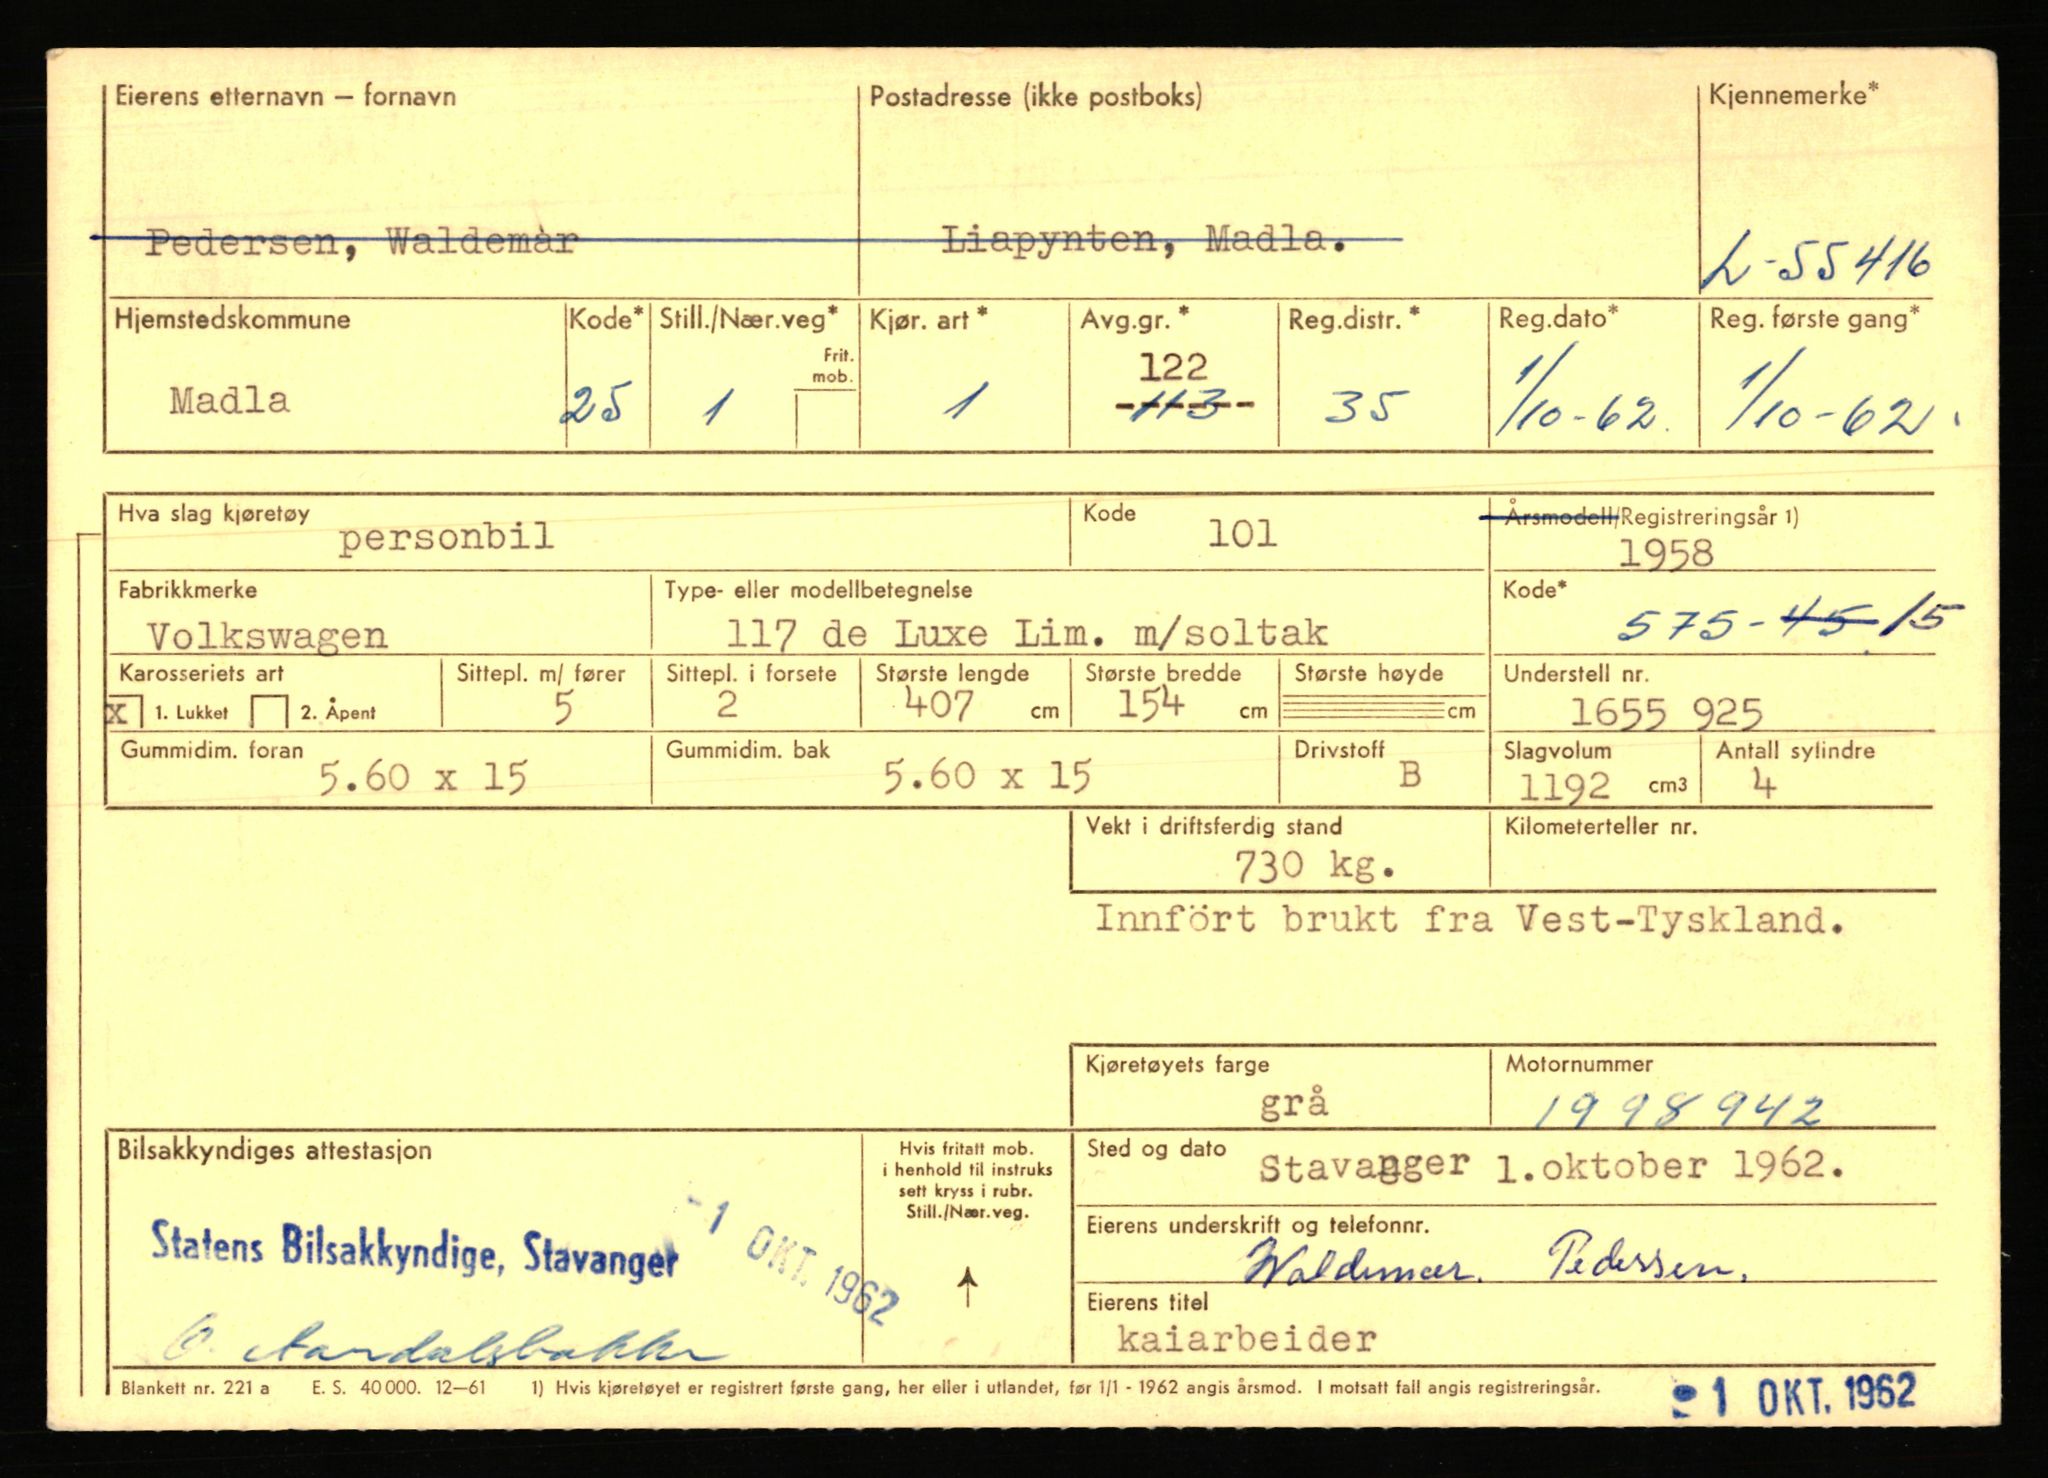 Eierens etternavn — fornavn Postadresse (ikke postboks) Kjennemerke*
Pedersen, Waldemar Liapynten, Madla. L-55416
Hjemstedskommune Kode* Still./Nær.veg* Kjør. art* Avg.gr.* Reg.distr.* Reg.dato* Reg. første gang*
Frit.
mob.
122
Madla 25 1 1 113 35 1/10-62. 1/10-62.
Hva slag kjøretøy Kode Årsmodell/Registreringsår 1)
personbil 101 1958
Fabrikkmerke Type- eller modellbetegnelse Kode*
Volkswagen 117 de Luxe Lim. m/soltak 575-45/5
Karosseriets art Sittepl. m/ fører Sittepl. i forsete Største lengde Største bredde Største høyde Understell nr.
x 1. Lukket 2. Åpent 5 2 407 cm 154 cm cm 1655 925
Gummidim. foran Gummidim. bak Drivstoff Slagvolum Antall sylindre
5.60 x 15 5.60 x 15 B 1192 cm3 4
Vekt i driftsferdig stand Kilometerteller nr.
730 kg.
Innfört brukt fra Vest-Tyskland.
Kjøretøyets farge Motornummer
grå 1998942
Bilsakkyndiges attestasjon
Hvis fritatt mob.
i henhold til instruks
sett kryss i rubr.
Still./Nær.veg.
Sted og dato Stavanger 1.oktober 1962.
Statens Bilsakkyndige, Stavanger
-1 OKT. 1962
Eierens underskrift og telefonnr.
Waldemar. Pedersen.
Eierens titel
kaiarbeider
O. Aardalsbakke
Blankett nr. 221 a E. S. 40 000. 12—61 1) Hvis kjøretøyet er registrert første gang, her eller i utlandet, før 1/1 - 1962 angis årsmod. I motsatt fall angis registreringsår.
1 OKT. 1962